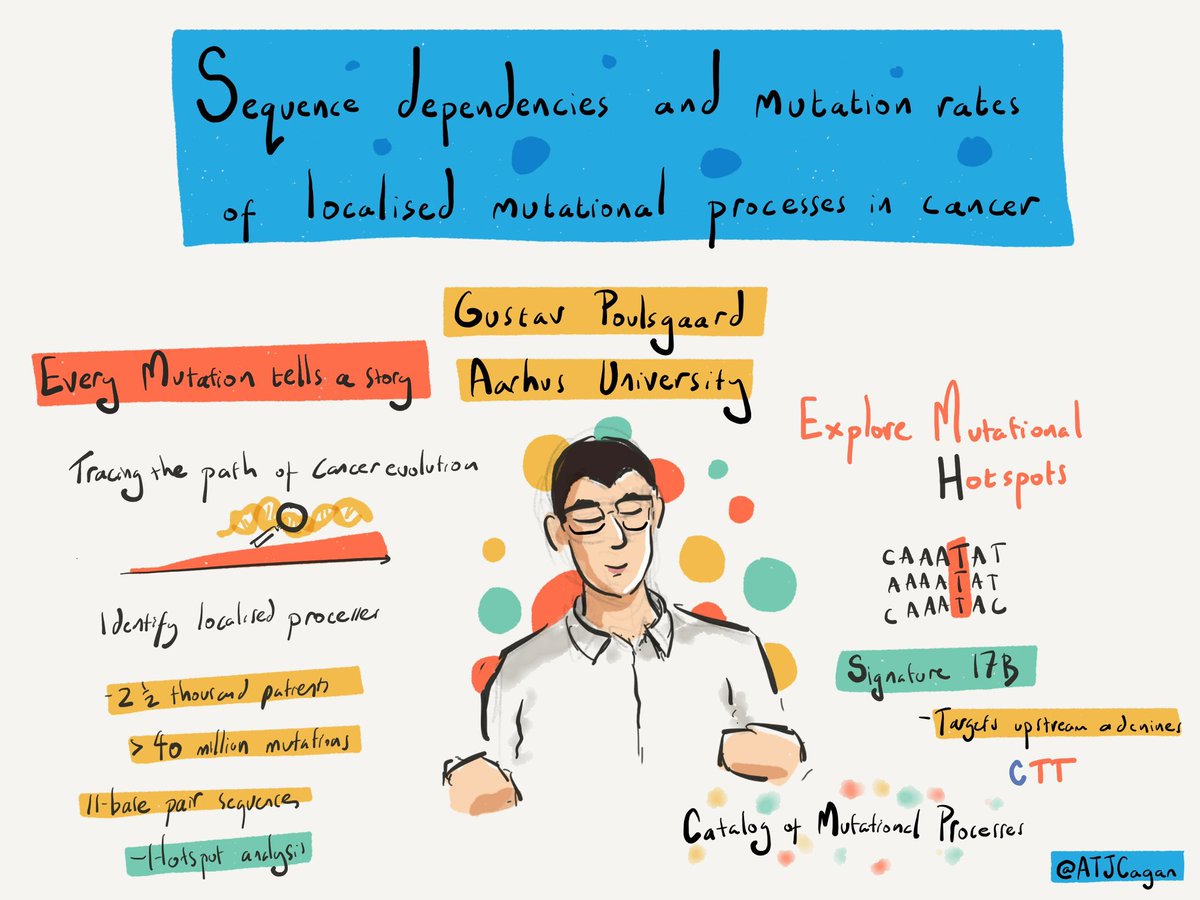 Sequence dependencies and mutation rates
of localised mutational processes in cancer
Gustav Poulsgaard
Aarhus University
Every Mutation tells a story
Tracing the path of cancer evolution
Identify localised processes
-2 ½ thousand patients
> 40 million mutations
11-base pair sequences
-Hotspot analysis
Explore Mutational
Hotspots
CAAATAT
AAAATAT
CAAATAC
Signature 17B
-Targets upstream adenines
CTT
Catalog of Mutational Processes
@ATJCagan